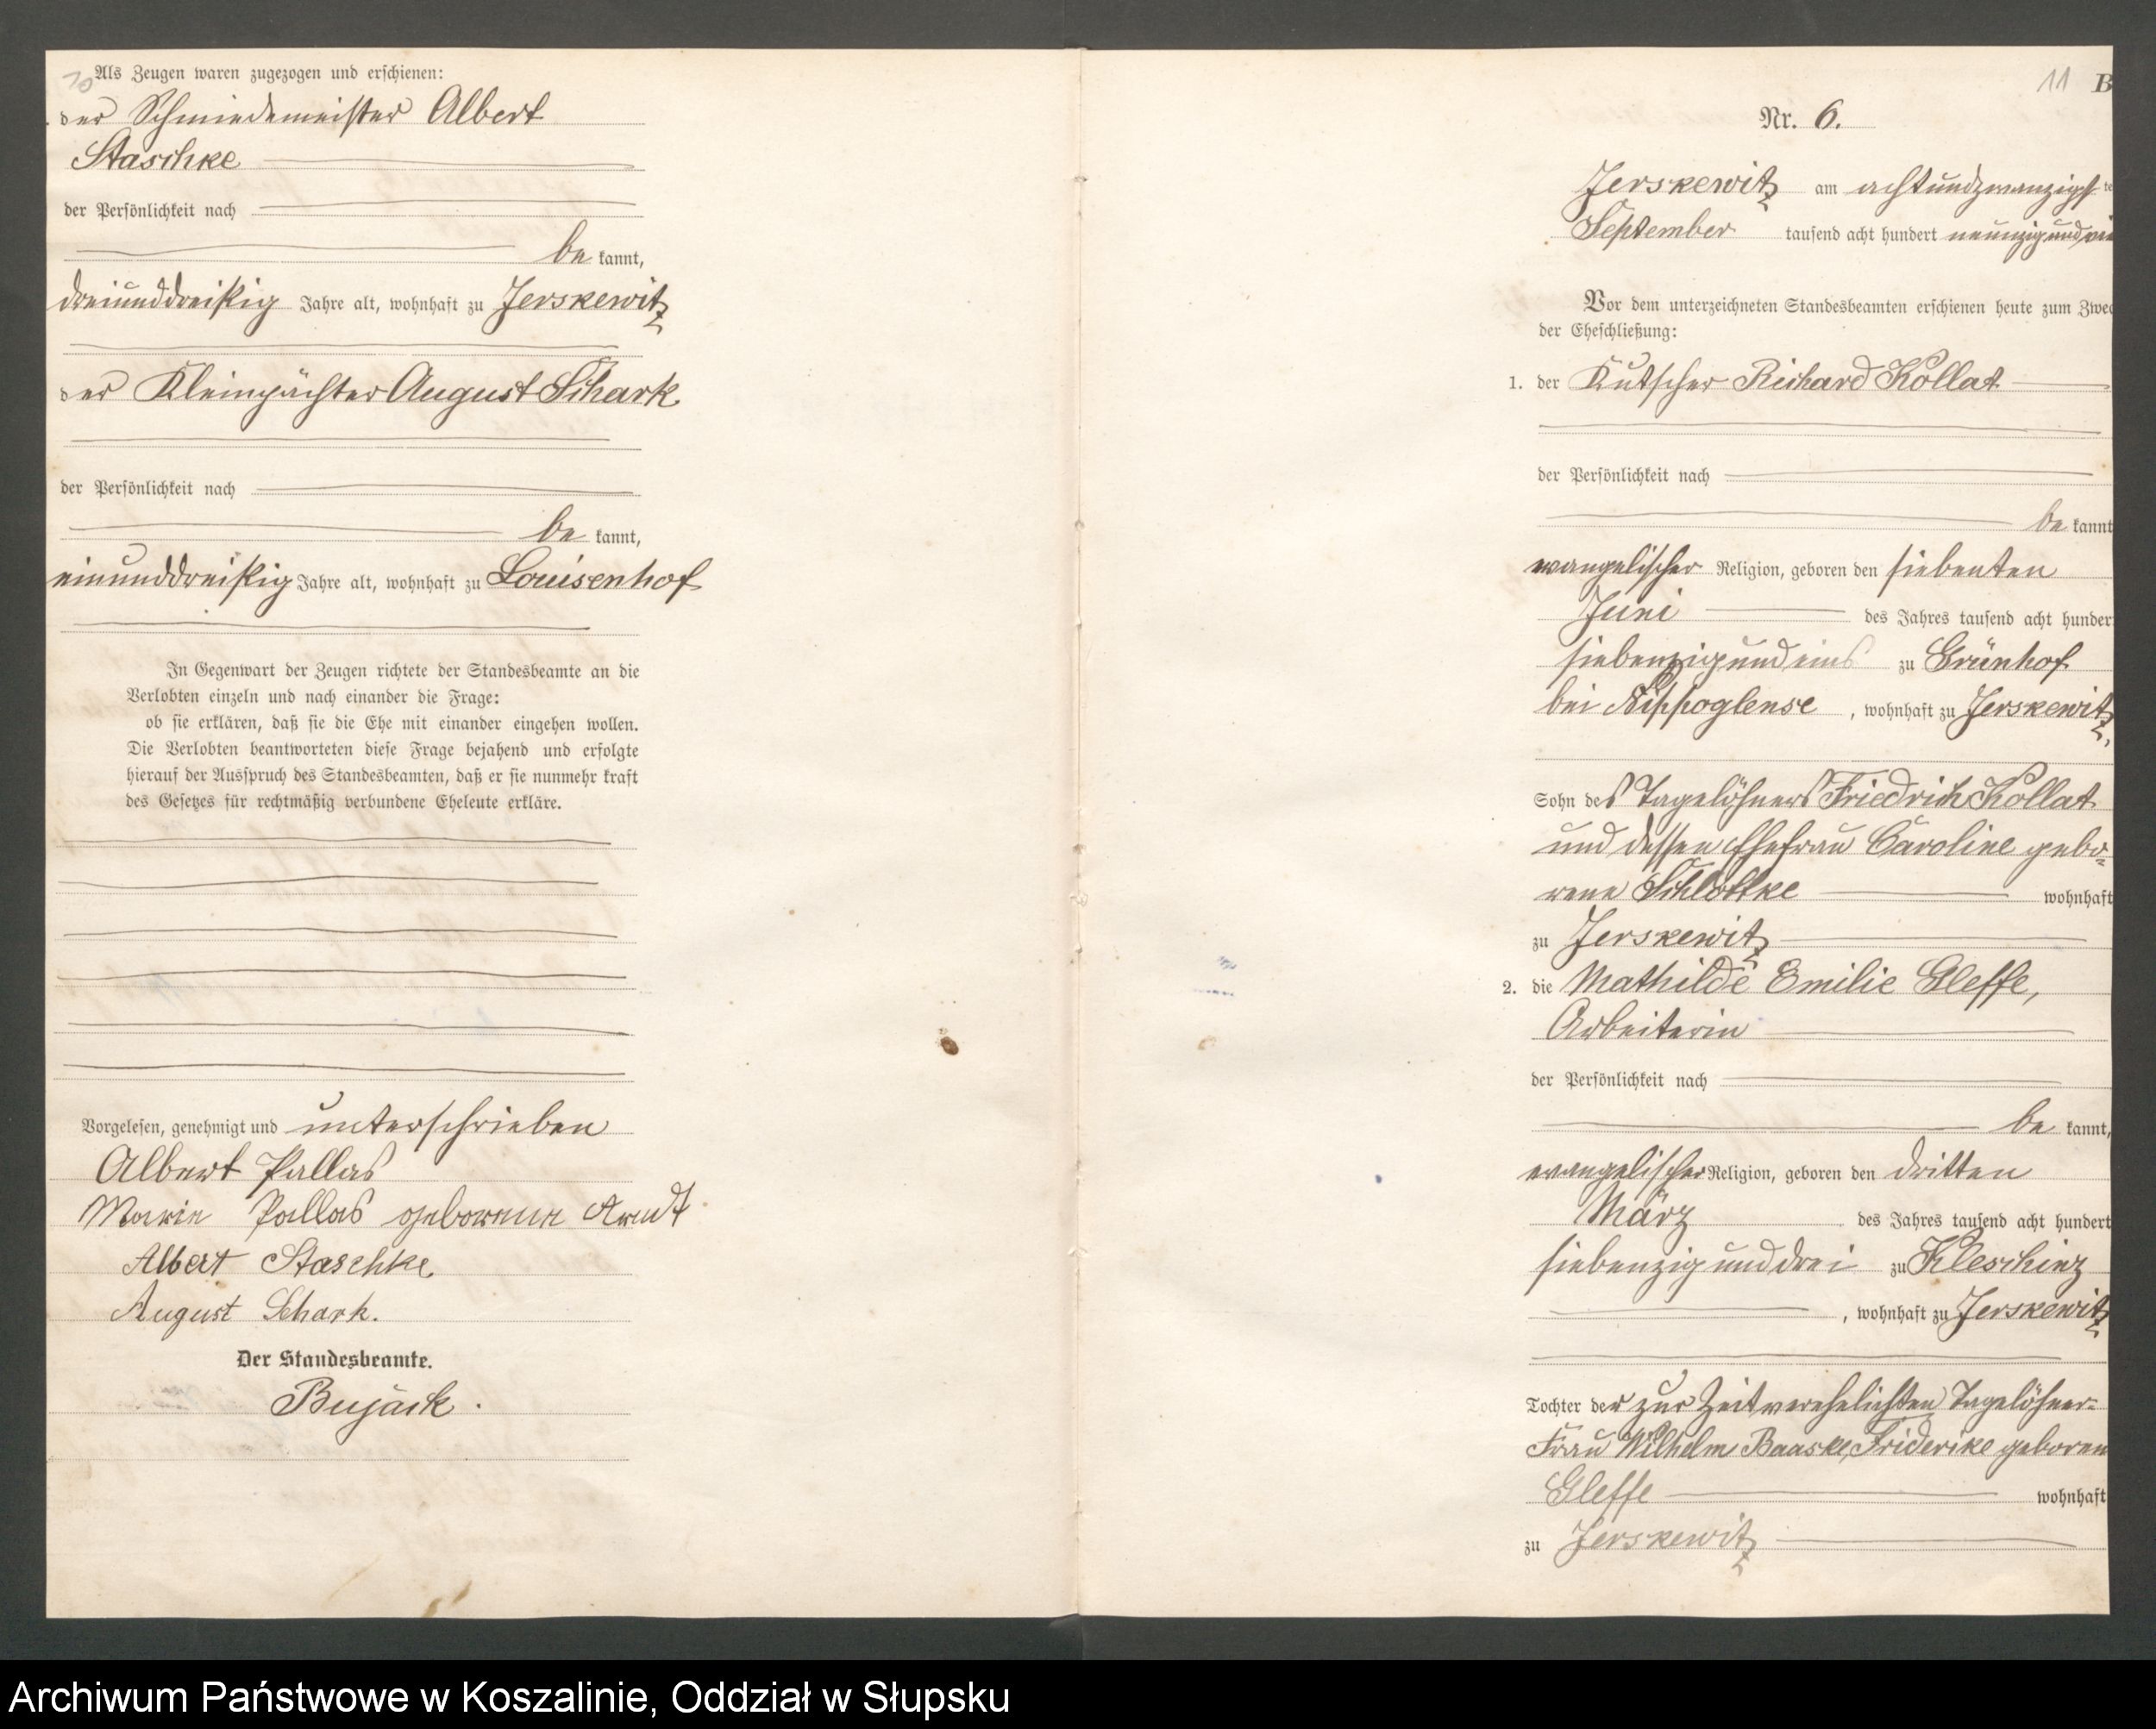 10
Als Zeugen waren zugezogen und erschienen:
der Schmiedemeister Albert
Staschke
der Persönlichkeit nach
be kannt,
dreiunddreißig Jahre alt, wohnhaft zu Jerskewitz
der Kleinpächter August Schark
der Persönlichkeit nach
be kannt,
einunddreißig Jahre alt, wohnhaft zu Louisenhof
In Gegenwart der Zeugen richtete der Standesbeamte an die
Verlobten einzeln und nach einander die Frage:
ob sie erklären, daß sie die Ehe mit einander eingehen wollen.
Die Verlobten beantworteten diese Frage bejahend und erfolgte
hierauf der Ausspruch des Standesbeamten, daß er sie nunmehr kraft
des Gesetzes für rechtmäßig verbundene Eheleute erkläre.
Vorgelesen, genehmigt und unterschrieben
Albert Pallas
Marie Pallas geborene Arndt
Albert Staschke
August Schark.
Der Standesbeamte.
Bujack.
11 B
Nr. 6.
Jerskewitz am achtundzwanzigst te
September tausend acht hundert neunzig und vie
Vor dem unterzeichneten Standesbeamten erschienen heute zum Zwec
der Eheschließung:
1. der Kutscher Richard Kollat
der Persönlichkeit nach
be kannt
evangelischer Religion, geboren den siebenten
Juni des Jahres tausend acht hunder
siebenzig und eins zu Grünhof
bei Nippoglense, wohnhaft zu Jerskewitz,
Sohn des Tagelöhners Friedrich Kollat
und dessen Ehefrau Caroline gebo-
rene Schlottke wohnhaft
zu Jerskewitz
2. die Mathilde Emilie Gleffe,
Arbeiterin
der Persönlichkeit nach
be kannt,
evangelischer Religion, geboren den dritten
März des Jahres tausend acht hundert
siebenzig und drei zu Kleschinz
, wohnhaft zu Jerskewitz
Tochter der zur Zeit verehelichten Tagelöhner-
Frau Wilhelm Baaske, Friderike geboren
Gleffe wohnhaft
zu Jerskewitz
Archiwum Państwowe w Koszalinie, Oddział w Słupsku